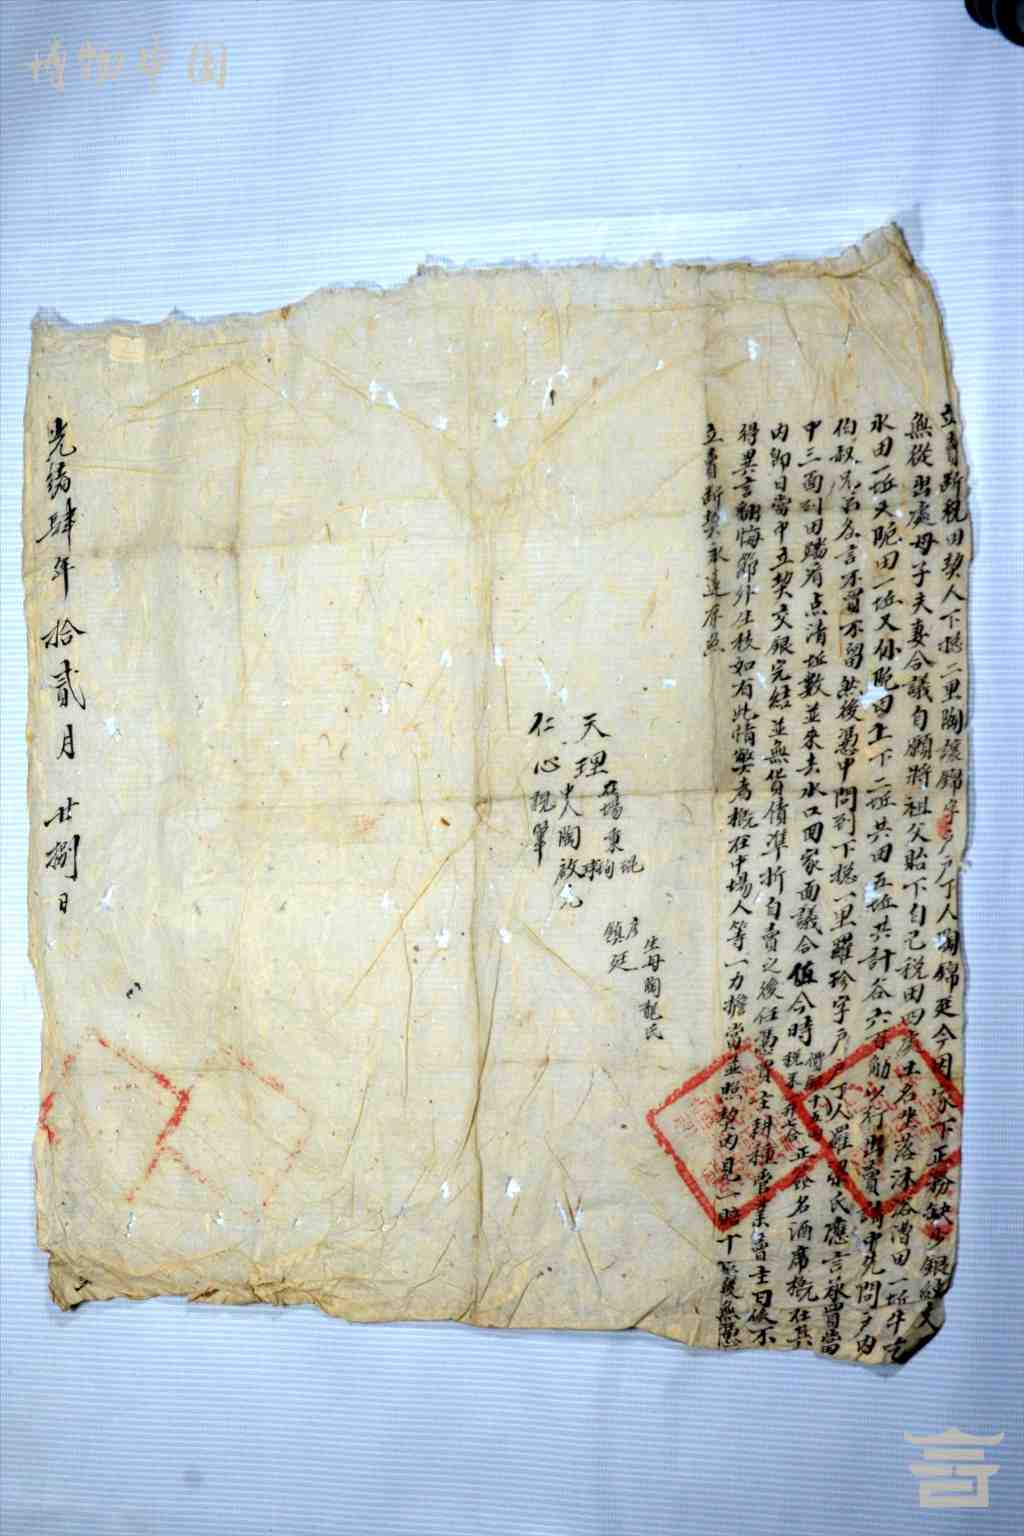 博物中国
立賣断税田契人下揔二里陶讓錦字户户丁人陶錦廷今因家下正務缺少銀錢支
無從出處母子夫妻合議自願將祖父貽下自己税田四處土名坐落沐浴漕田一坵牛乞
水田一坵大陂田一坵又仆陂田上下二坵共田五坵共計谷六百觔以行出賣請中先問户内
伯叔兄弟各言不買不留然後憑中問到下揔一里羅珍字户户丁人羅梁氏應言承買當
中三面到田踏看点清坵數並來去水口回家面議合值今時價銀十五両税米升七合正命名酒席概在其
内即日當中立契交銀完結並無貨債準折自賣之後任憑買主耕種管業賣主日後不
得異言翻悔節外生枝如有此情弊者概在中場人等一力擔當並照契内見一賠十恐後無憑
立賣断契永遠存照
生母陶龍氏
彦
鎮廷
在場東琨
天理
中人陶啟元
仁心親筆
光緒肆年拾貳月廿捌日